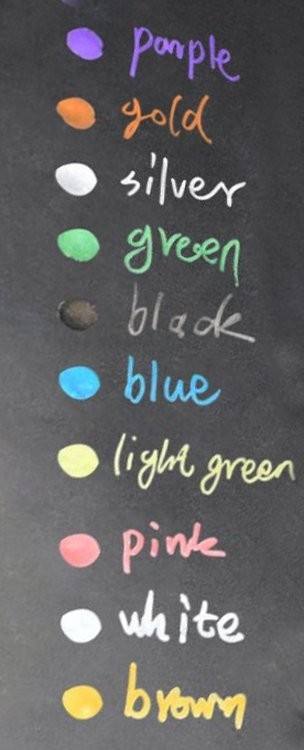 purple
gold
silver
green
black
blue
light green
pink
white
brown